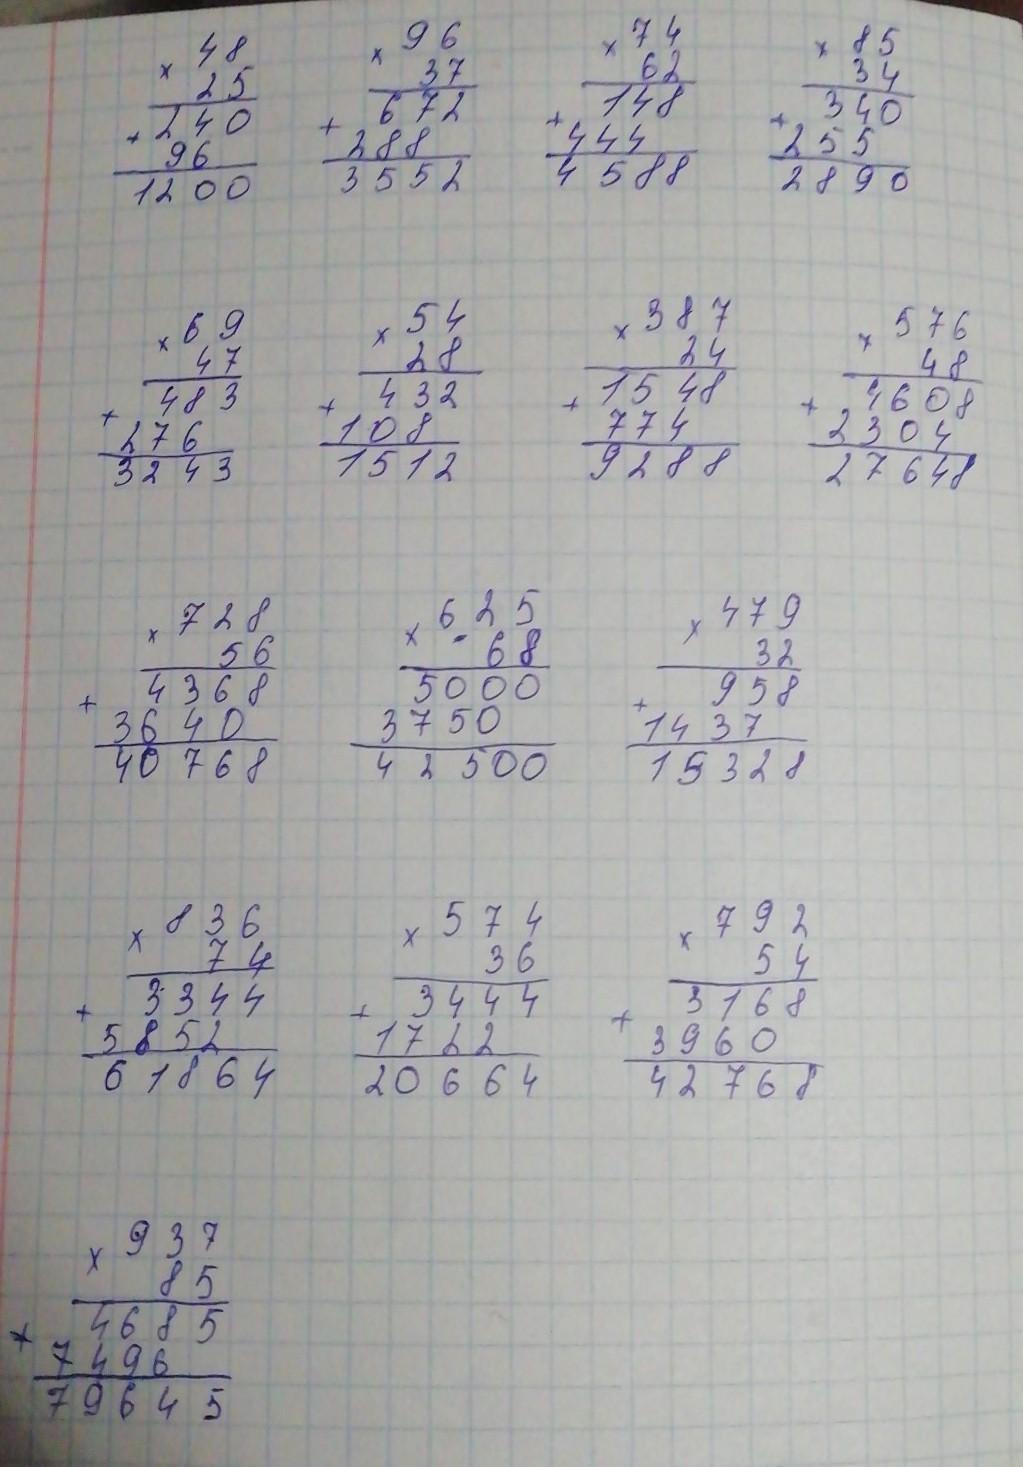 × 48
25
240
+ 96
1200
× 96
37
672
+ 288
3552
× 74
62
148
+ 444
4588
× 85
34
340
+ 255
2890
× 69
47
483
+ 276
3243
× 54
28
432
+ 108
1512
× 387
24
1548
+ 774
9288
× 576
48
4608
+ 2304
27648
× 728
56
4368
+ 3640
40768
× 625
68
5000
3750
42500
× 479
32
958
+ 1437
15328
× 836
74
3344
+ 5852
61864
× 574
36
3444
+ 1722
20664
× 792
54
3168
+ 3960
42768
× 937
85
4685
+ 7496
79645